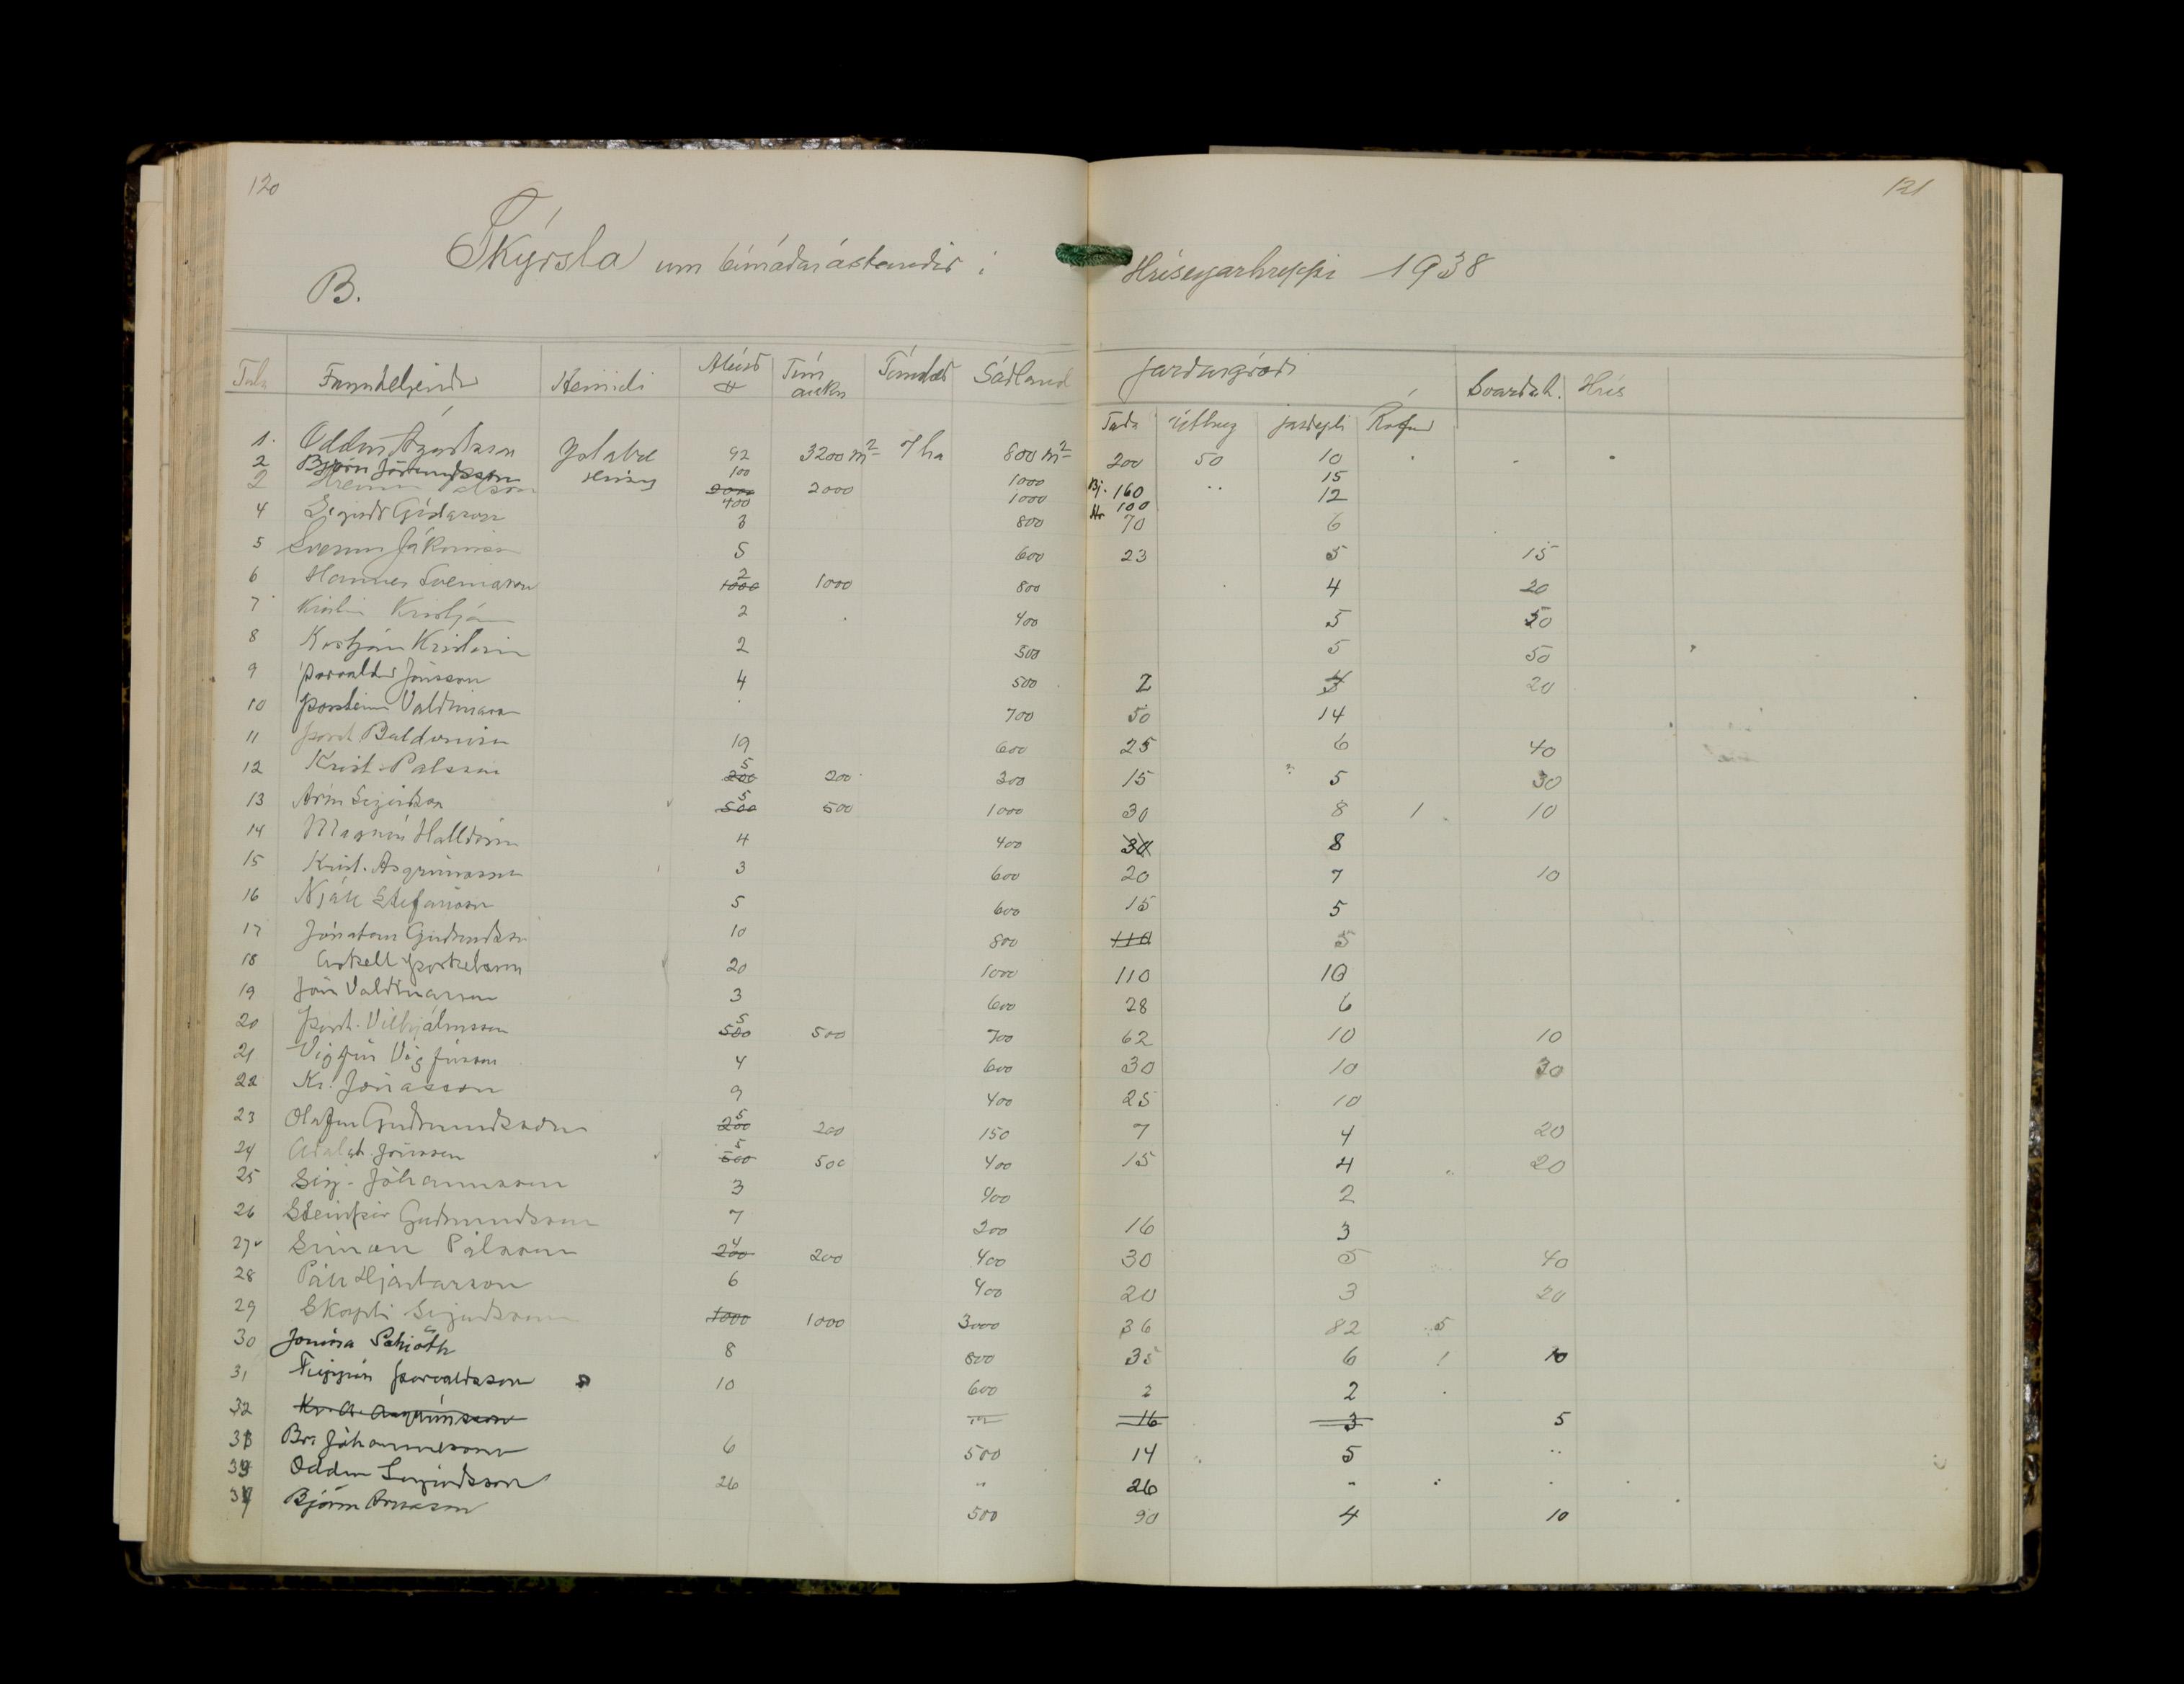 120
121
Skýrsla um búnaðarástandið í Hríseyjarhreppi 1938
B.
Tala Framteljendur Heimili Áburð Tún auka Túnstæð Sáðland Jarðargróði Svarðart. Hrís
Taða Úthey Jarðepli Rófur
1. Oddur Ágústsson Ystabæ 92 3200 m² 7 ha 800 m² 200 50 10
2 Björn Jörundsson Hrísey 100 1000 Bj. 160 15
2 Hreinn Pálsson 2000 400 2000 1000 Hr 100 12
4 Sigurð Gíslason 3 800 70 6
5 Sveinn 5 600 23 5 15
6 Hannes 2 1000 1000 800 4 20
7 Kristin Kristján 2 400 5 50
8 Kristján Kristins 2 500 5 50
9 Þorvaldur Jónsson 4 500 2 4 20
10 Þorsteinn Valdimarsson 700 50 14
11 Þorst. Baldvinsson 19 600 25 6 40
12 Krist. Pálsson 5 200 200 200 15 5 30
13 Árni 5 500 500 1000 30 8 1 10
14 Magnús Halldórs 4 400 30 8
15 Krist. Ásgrímsson 3 600 20 7 10
16 Njáll Stefánsson 5 600 15 5
17 Jónatan Guðmundsson 10 800 110 5
18 Áskell Þorkelsson 20 1000 110 10
19 Jón Valdimarsson 3 600 28 6
20 Þorst. Vilhjálmsson 5 500 500 700 62 10 10
21 Vigfús Vigfússon 4 600 30 10 30
22 Kr. Jónasson 9 400 25 10
23 Olafur Guðmundsson 5 200 200 150 7 4 20
24 Jónsson 5 500 500 400 15 4 20
25 Sig. Jóhannsson 3 400 2
26 Steinþór Guðmundsson 7 200 16 3
27 Símon Pálsson 4 200 200 400 30 5 40
28 Páll Hjartarson 6 400 20 3 20
29 Skapti 1000 1000 3000 36 82 5
30 Jónína Schiöth 8 800 35 6 1 10
31 Þorvaldsson 10 600 2 2
32 Kr. A. Ásgrímsson 16 3 5
33 Br. Jóhannesson 6 500 14 5
Oddur Sigurðsson 26 26
Björn 500 90 4 10